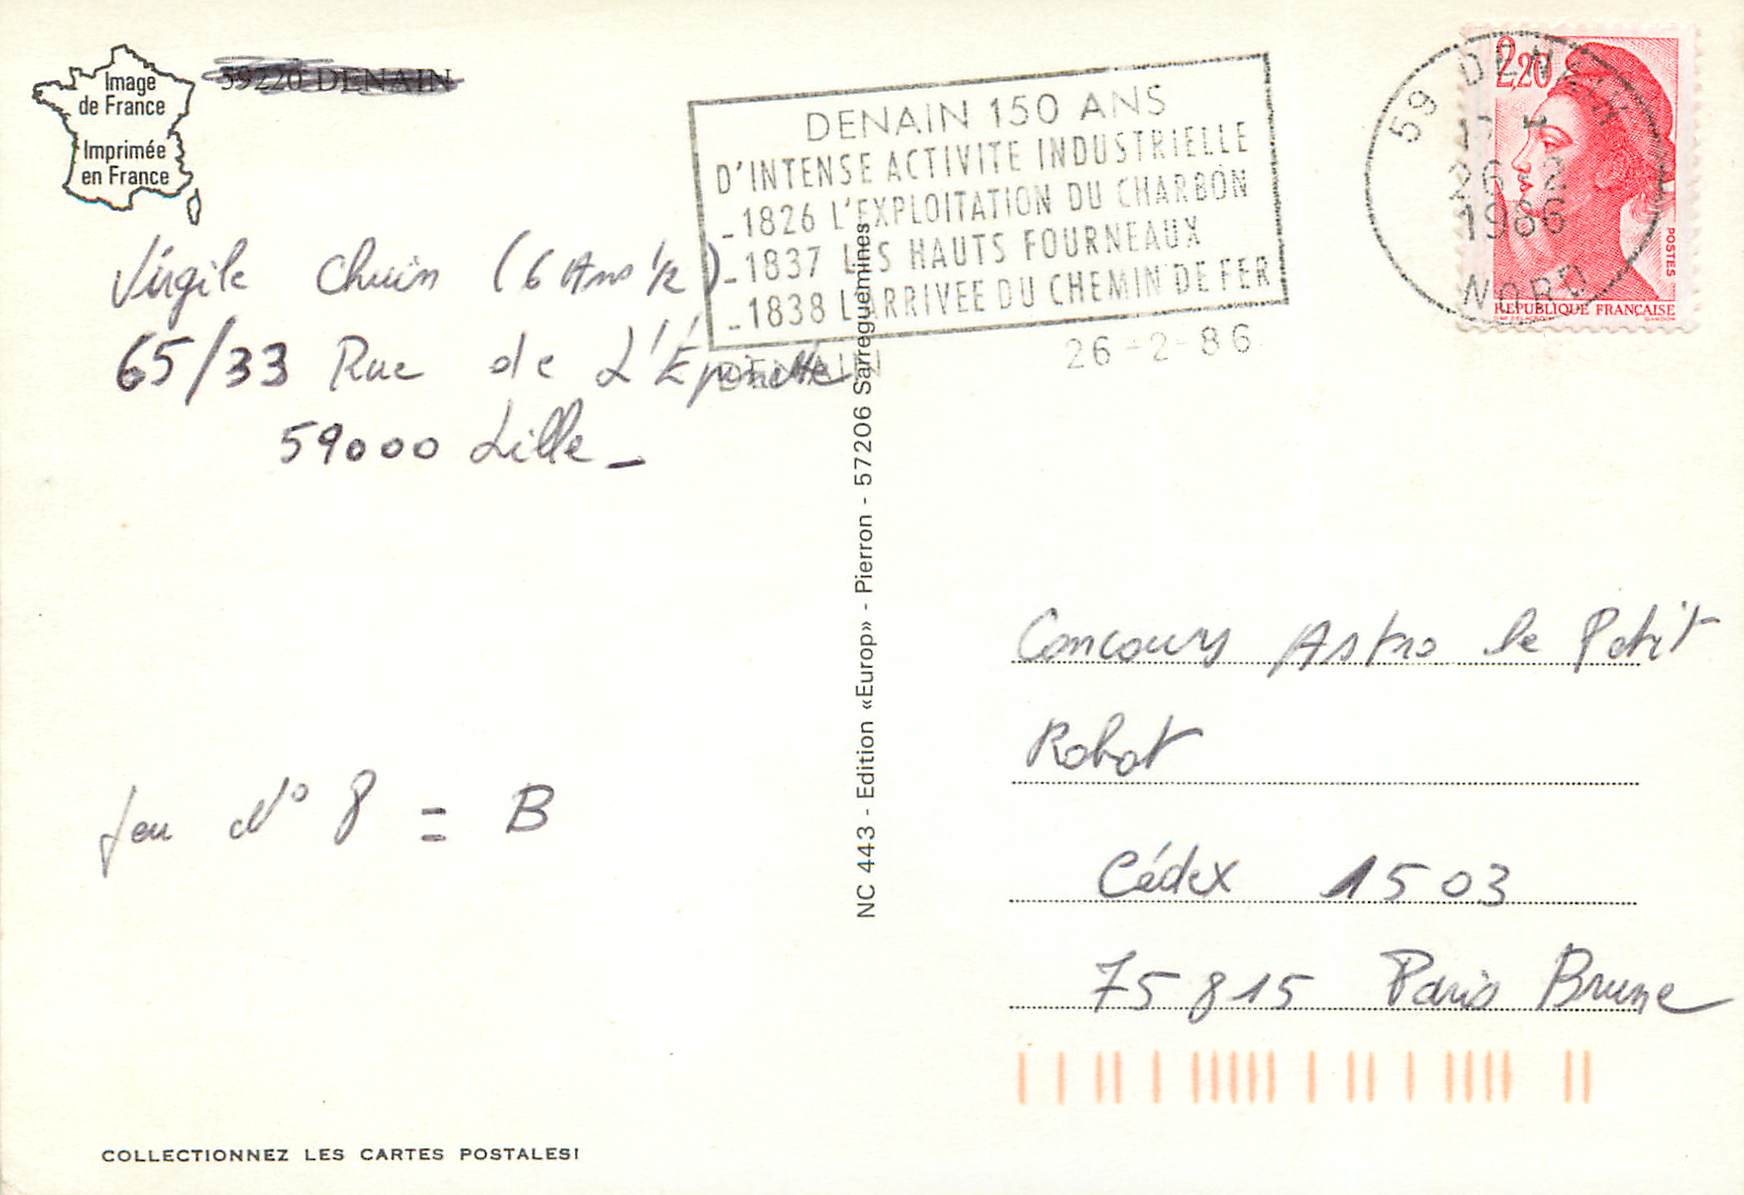 Image
de France
Imprimée
en France
59220 DENAIN
DENAIN 150 ANS
D'INTENSE ACTIVITE INDUSTRIELLE
-1826 L'EXPLOITATION DU CHARBON
-1837 LES HAUTS FOURNEAUX
-1838 L'ARRIVEE DU CHEMIN DE FER
DENAIN
26-2-86
59 DENAIN
26-2
1986
NORD
2,20
POSTES
REPUBLIQUE FRANÇAISE
Virgile Chuin (6 Ans 1/2)
65/33 Rue de L'Épinette
59000 Lille_
Jeu N° 8 = B
NC 443 - Edition «Europ» - Pierron - 57206 Sarreguemines
Concours Astro le Petit
Robot
Cédex 1503
75815 Paris Brune
COLLECTIONNEZ LES CARTES POSTALES!